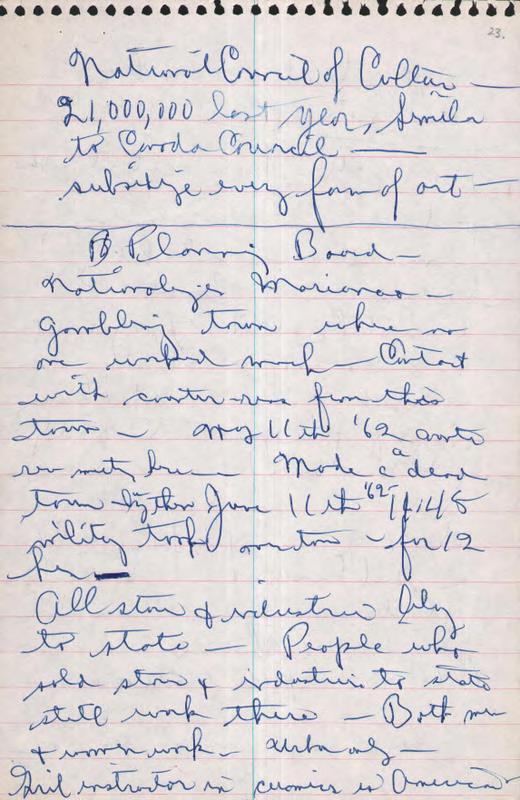 23.
National Council of Culture —
21,000,000 last year, similar
to Canada Council —
subsidize every form of art —
B Planning Board —
Nationalizes Marianao —
gambling town where no
one worked much — Contact
with counter-revs from this
town — May 11th '62
rev meeting here — Made a dead
town by then June 11th '62
military took over town — for 12
hrs —
All stores & industries belong
to state — People who
sold stores & industries to state
still work there — Both men
& women work —
Girl instructor in ceramics is American